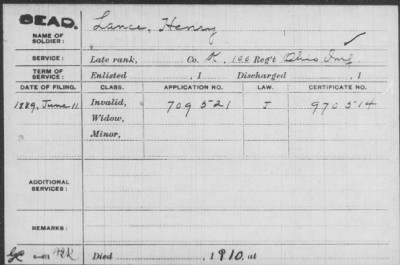 DEAD.
NAME OF SOLDIER: Lance, Henry
SERVICE: Late rank, Co. Reg't Ohio Inf
TERM OF SERVICE: Enlisted , 1 Discharged , 1
DATE OF FILING. CLASS. APPLICATION NO. LAW. CERTIFICATE NO.
1889, June 11 Invalid, 709 521 J 970 514
Widow,
Minor,
ADDITIONAL SERVICES:
REMARKS:
Died , 1910, at